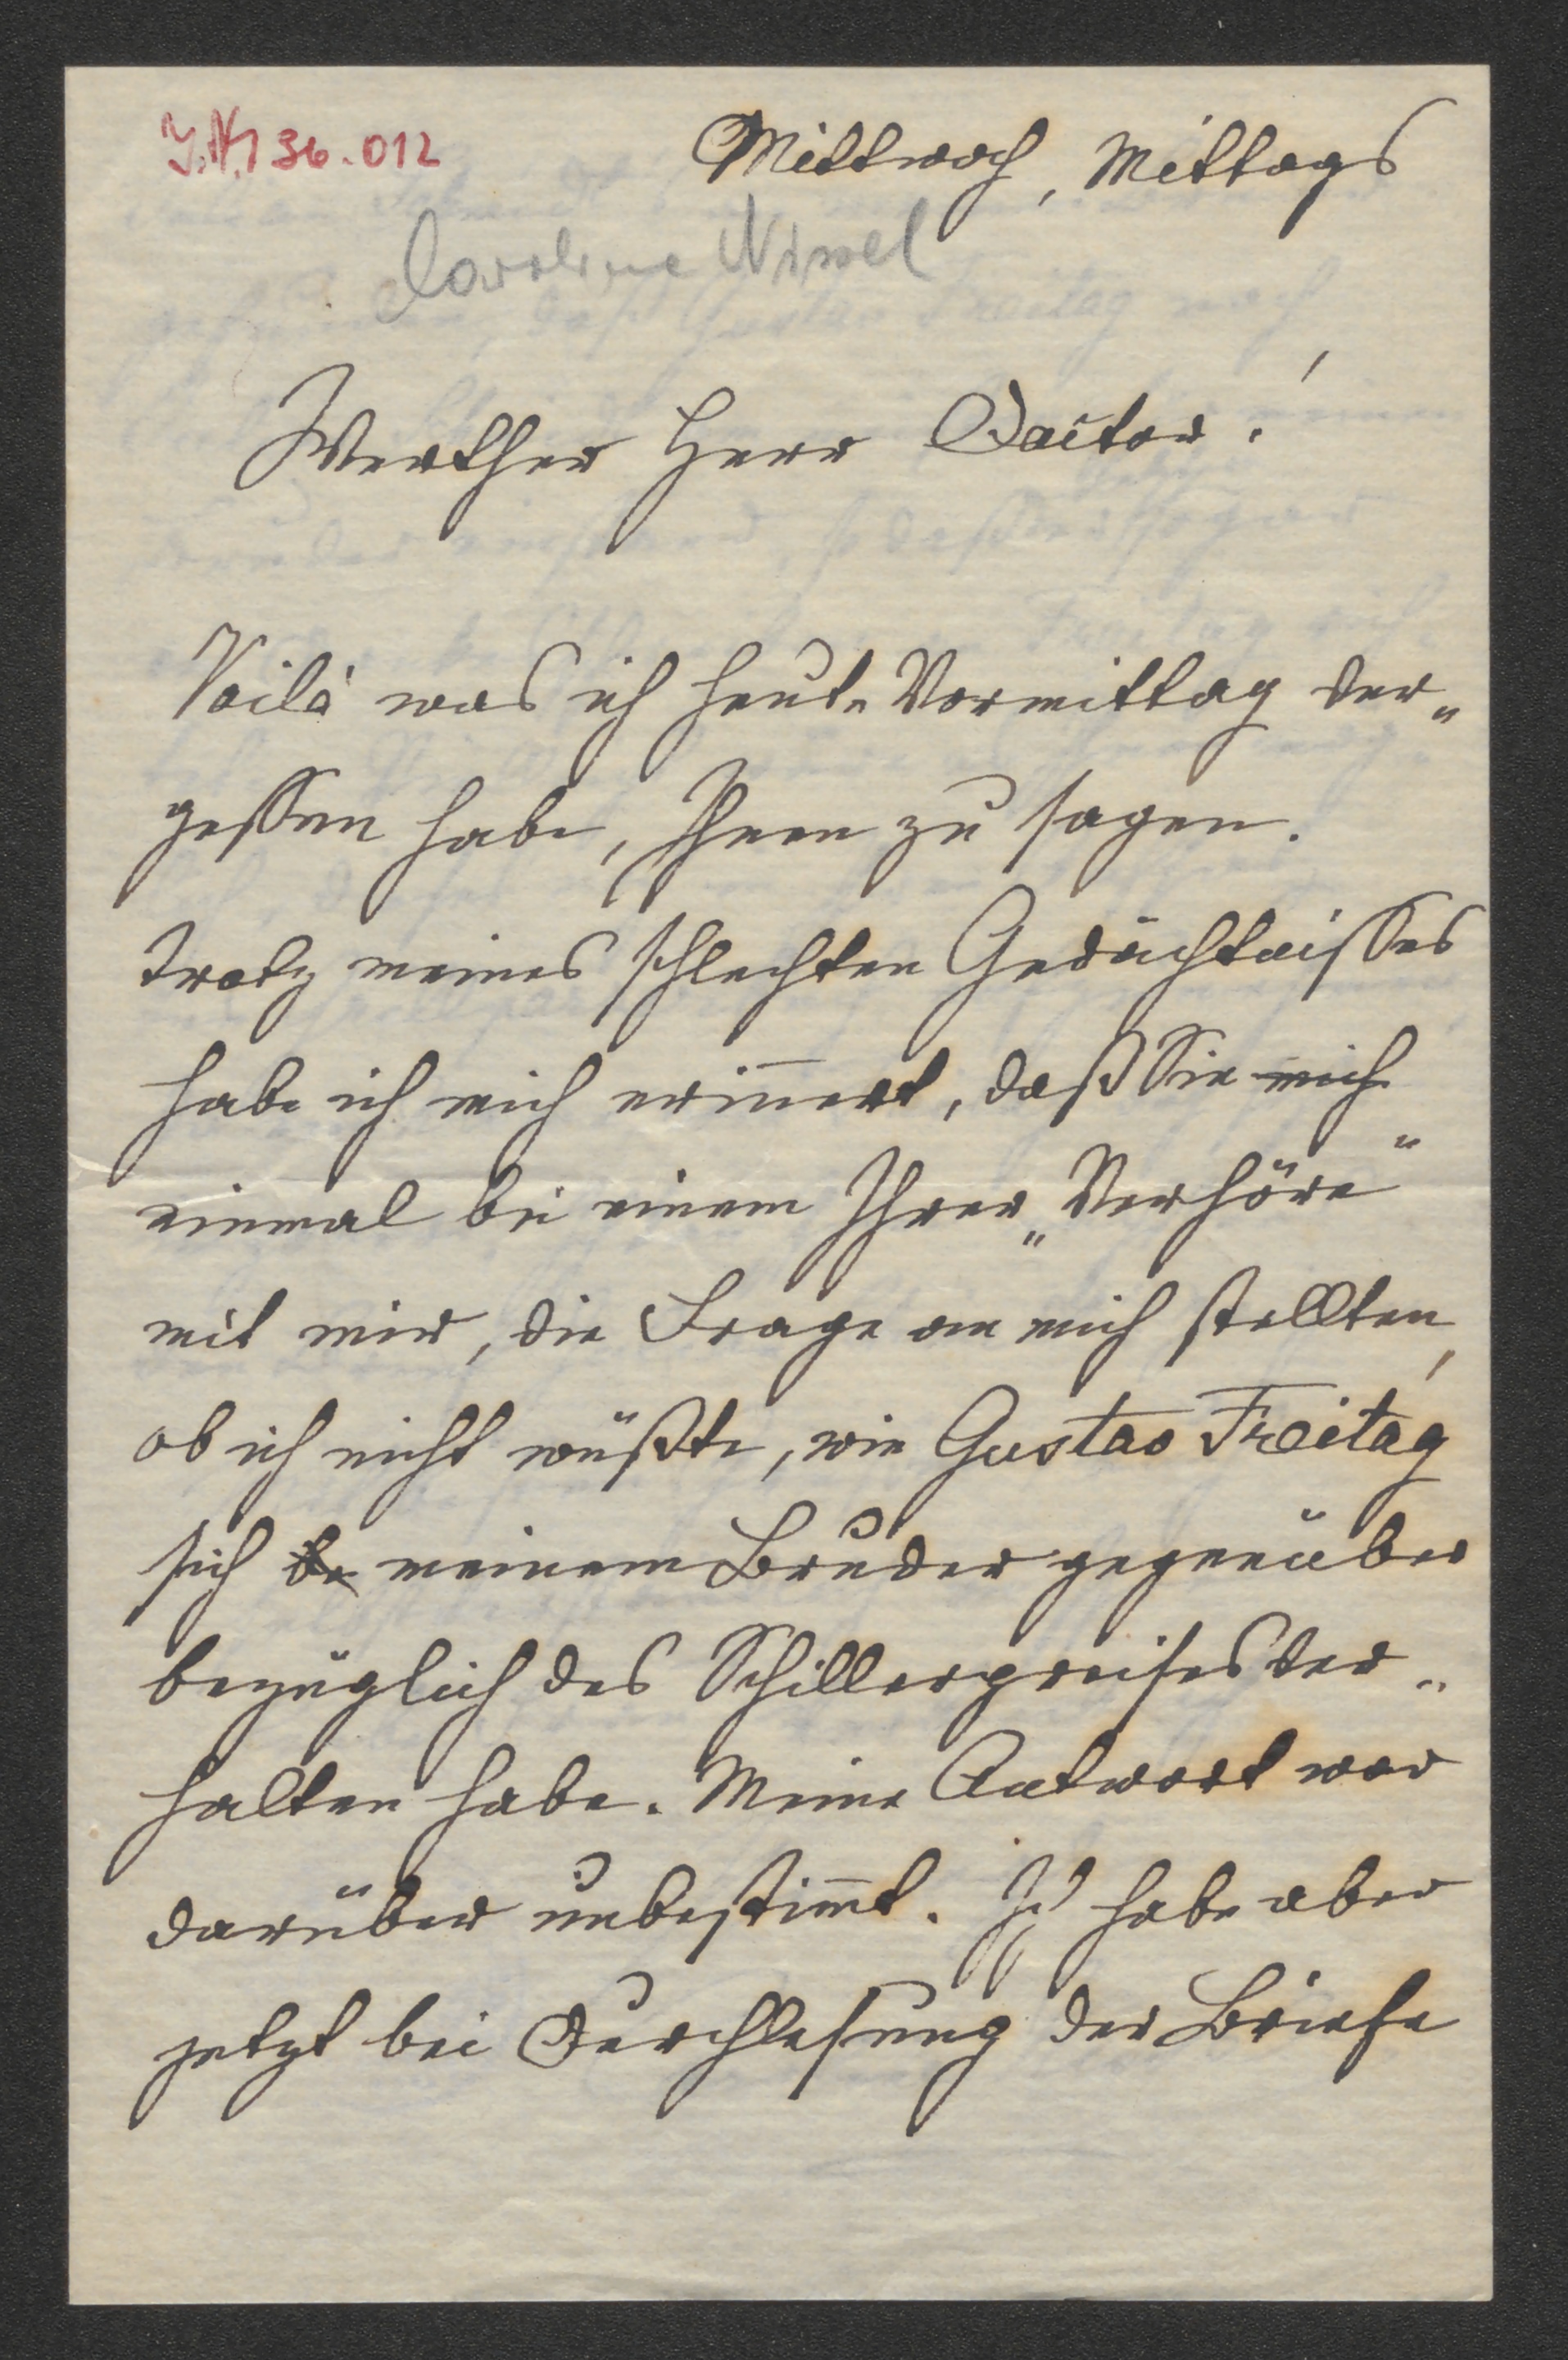 J.N. 136.012
Mittwoch, Mittags
Caroline Nissel
Werther Herr Doctor!
Voilà was ich heute Vormittag ver„
gessen habe, Ihnen zu sagen.
Trotz meines schlechten Gedächtnisses
habe ich mich erinnert, daß Sie mich
einmal bei einem Ihrer „Verhöre“
mit mir, die Frage an mich stellten,
ob ich nicht wüßte, wie Gustav Freitag
sich be meinem Bruder gegenüber
bezüglich des Schillerpreises ver„
halten habe. Meine Antwort war
darüber unbestim̅t. Ich habe aber
jetzt bei Durchlesung der Briefe